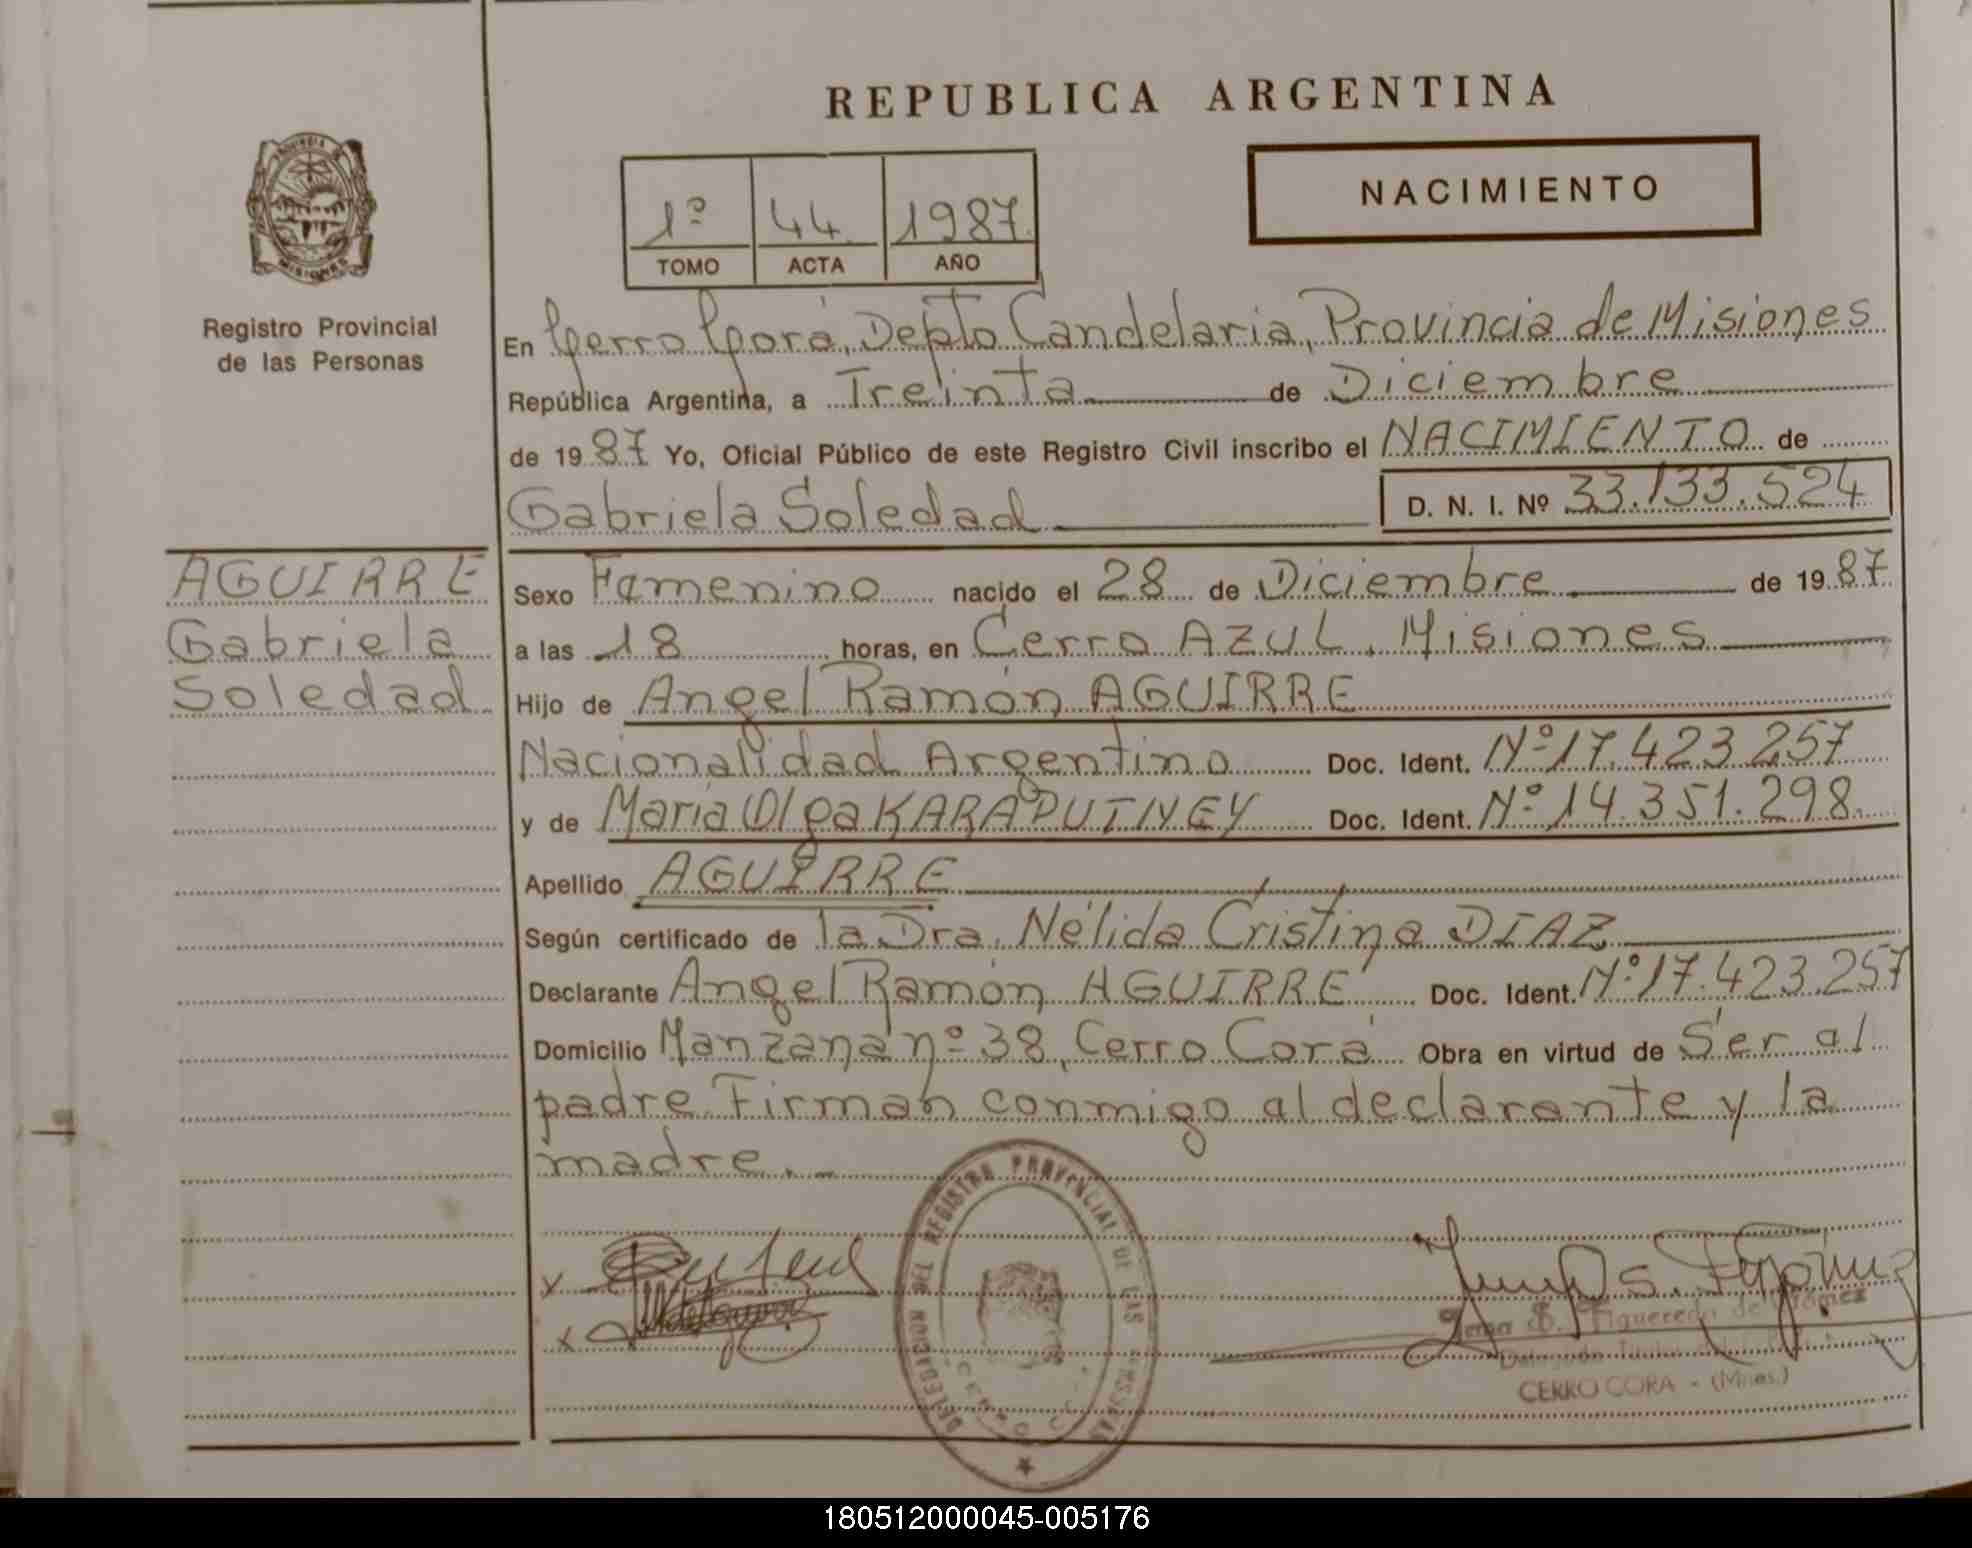 REPUBLICA ARGENTINA
NACIMIENTO
1º 44 1987
TOMO ACTA AÑO
MISIONES
Registro Provincial
de las Personas
En Cerro Corá, Depto Candelaria, Provincia de Misiones
República Argentina, a Treinta de Diciembre
de 1987 Yo, Oficial Público de este Registro Civil inscribo el NACIMIENTO de
Gabriela Soledad D. N. I. Nº 33.133.524
AGUIRRE
Gabriela
Soledad
Sexo Famenino nacido el 28 de Diciembre de 1987
a las 18 horas, en Cerro AZUL, Misiones
Hijo de Angel Ramón AGUIRRE
Nacionalidad Argentino Doc. Ident. Nº 17.423.257
y de María Olga KARAPUTNEY Doc. Ident. Nº 14.351.298.
Apellido AGUIRRE
Según certificado de la Dra. Nélida Cristina DIAZ
Declarante Angel Ramón AGUIRRE Doc. Ident. Nº 17.423.257
Domicilio Manzana nº 38, Cerro Corá Obra en virtud de Ser al
padre Firman conmigo al declarante y la
madre. _
DELEGACION DEL REGISTRO PROVINCIAL DE LAS PERSONAS
S. Figueredo de Gómez
Delegada Titular
CERRO CORA - (Mnes.)
180512000045-005176